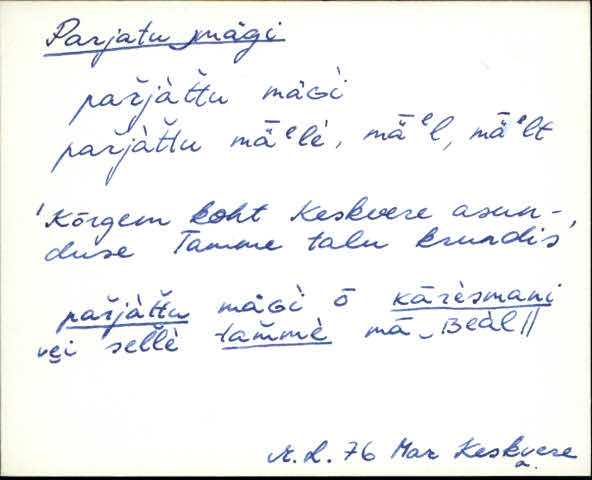 Parjatu mägi
pařjàťtu mäGì
pařjàťtu mǟᵉlè, mǟᵉl, mǟᵉlt
'Kõrgem koht Keskvere asun-
duse Tamme talu krundis'
pařjàťtu mäGì ō kāŕèsmani
vei seľlè tam̆mè mā Beàl ||
M.L. 76 Mar Keskvere